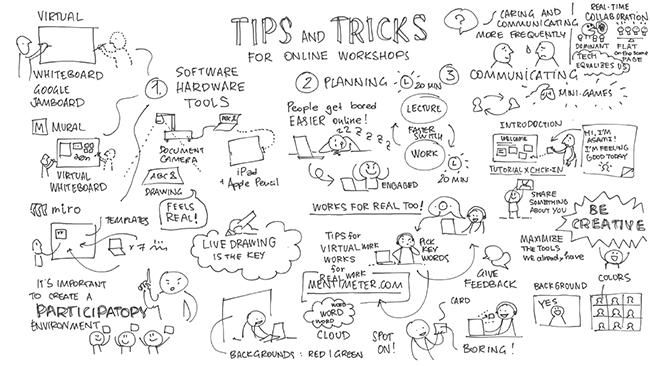 TIPS AND TRICKS
FOR ONLINE WORKSHOPS
VIRTUAL
WHITEBOARD
GOOGLE
JAMBOARD
M MURAL
VIRTUAL
WHITEBOARD
miro
TEMPLATES
IT'S IMPORTANT
TO CREATE A
PARTICIPATORY
ENVIRONMENT
1. SOFTWARE
HARDWARE
TOOLS
DOCUMENT
CAMERA
ABC
iPad
+ Apple Pencil
ABC
DRAWING
FEELS
REAL!
LIVE DRAWING
IS THE KEY
BACKGROUNDS: RED | GREEN
2 PLANNING
People get bored
EASIER online!
ZZZZZ
ENGAGED
20 MIN
LECTURE
FASTER
SWITCH
WORK
20 MIN
WORKS FOR REAL TOO!
TIPS for
VIRTUAL WORK
WORKS
for
REAL WORK
PICK
KEY
WORDS
MENTIMETER.COM
WORD
WORD
WORD
CLOUD
3
COMMUNICATING
?
CARING AND
COMMUNICATING
MORE FREQUENTLY
REAL-TIME
COLLABORATION
DOMINANT
FLAT
on the same
PAGE
TECH
EQUALIZES US
MINI-GAMES
INTRODUCTION
WELCOME
TUTORIAL X CHCK-IN
HI, I'M
ASAMI!
I'M FEELING
GOOD TODAY
SHARE
SOMETHING
ABOUT YOU
BE
CREATIVE
MAXIMIZE
THE TOOLS
We already have
COLORS
BACKGROUND
YES
GIVE
FEEDBACK
CARD
SPOT
ON!
BORING!